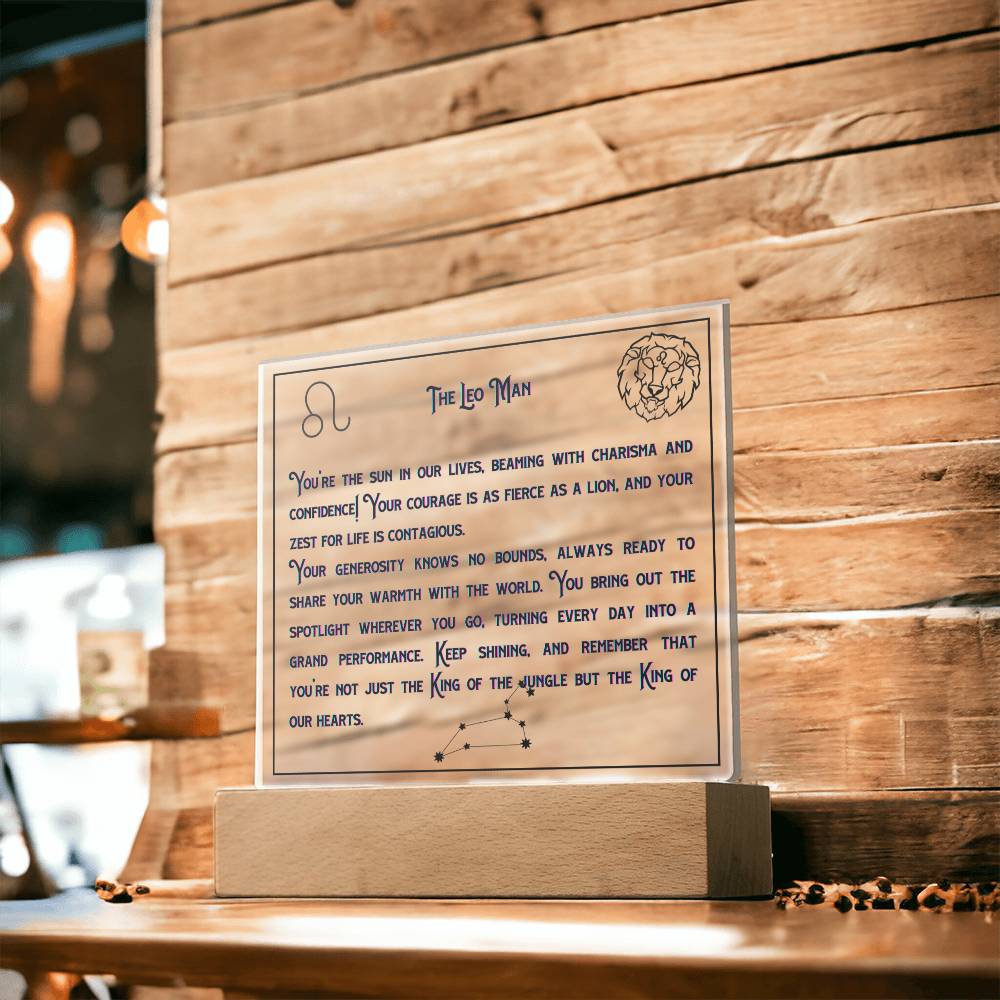 The Leo Man
You're the sun in our lives, beaming with charisma and
confidence! Your courage is as fierce as a lion, and your
zest for life is contagious.
Your generosity knows no bounds, always ready to
share your warmth with the world. You bring out the
spotlight wherever you go, turning every day into a
grand performance. Keep shining, and remember that
you're not just the King of the jungle but the King of
our hearts.